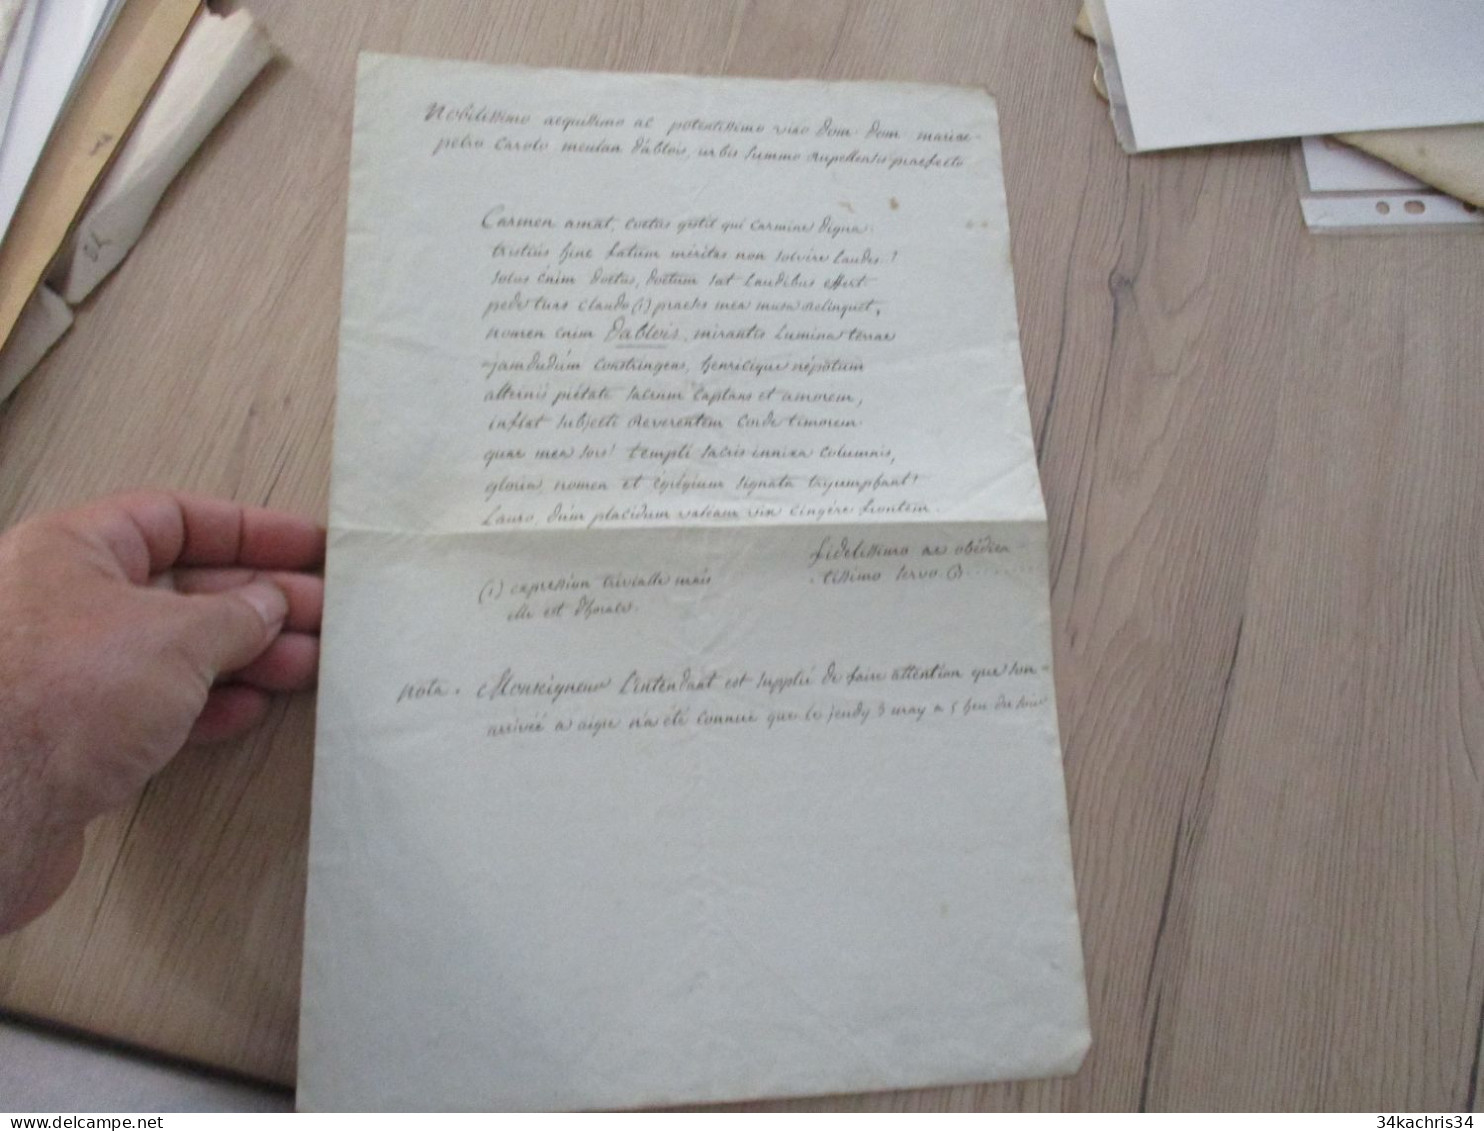 Nobilissimo aequissimo ac potentissimo viro Dom. Dom. mariae-
petro Carolo meulan Dablois, urbis summo rupellensis praefecto
Carmen amat, coetus gestit qui carmine digna
tristius hinc fatum meritas non solvire laudes !
solus énim doctus, doctum sat laudibus effert
pede tuas claudo (1) praeses mea musa relinquet,
nomen énim Dablois, mirantis lumina terrae
jamdudúm constringens, henricique népotum
alternis piétate sacrum captans et amorem,
inflat subjecti reverentem corde timorem
quae mea sors ! templi sacris innixa columnis,
gloria, nomen et égrégium signata tryumphant !
Lauro, dúm placidum valeam vix cingére frontem.
fidelissimo ac obédien
tissimo servo
(1) expression trivialle mais
elle est d'horace.
nota. Monseigneur l'intendant est supplié de faire attention que son
arrivée a aigre n'a été connue que le jeudy 3 may a 5 heu du soir
34kachris34